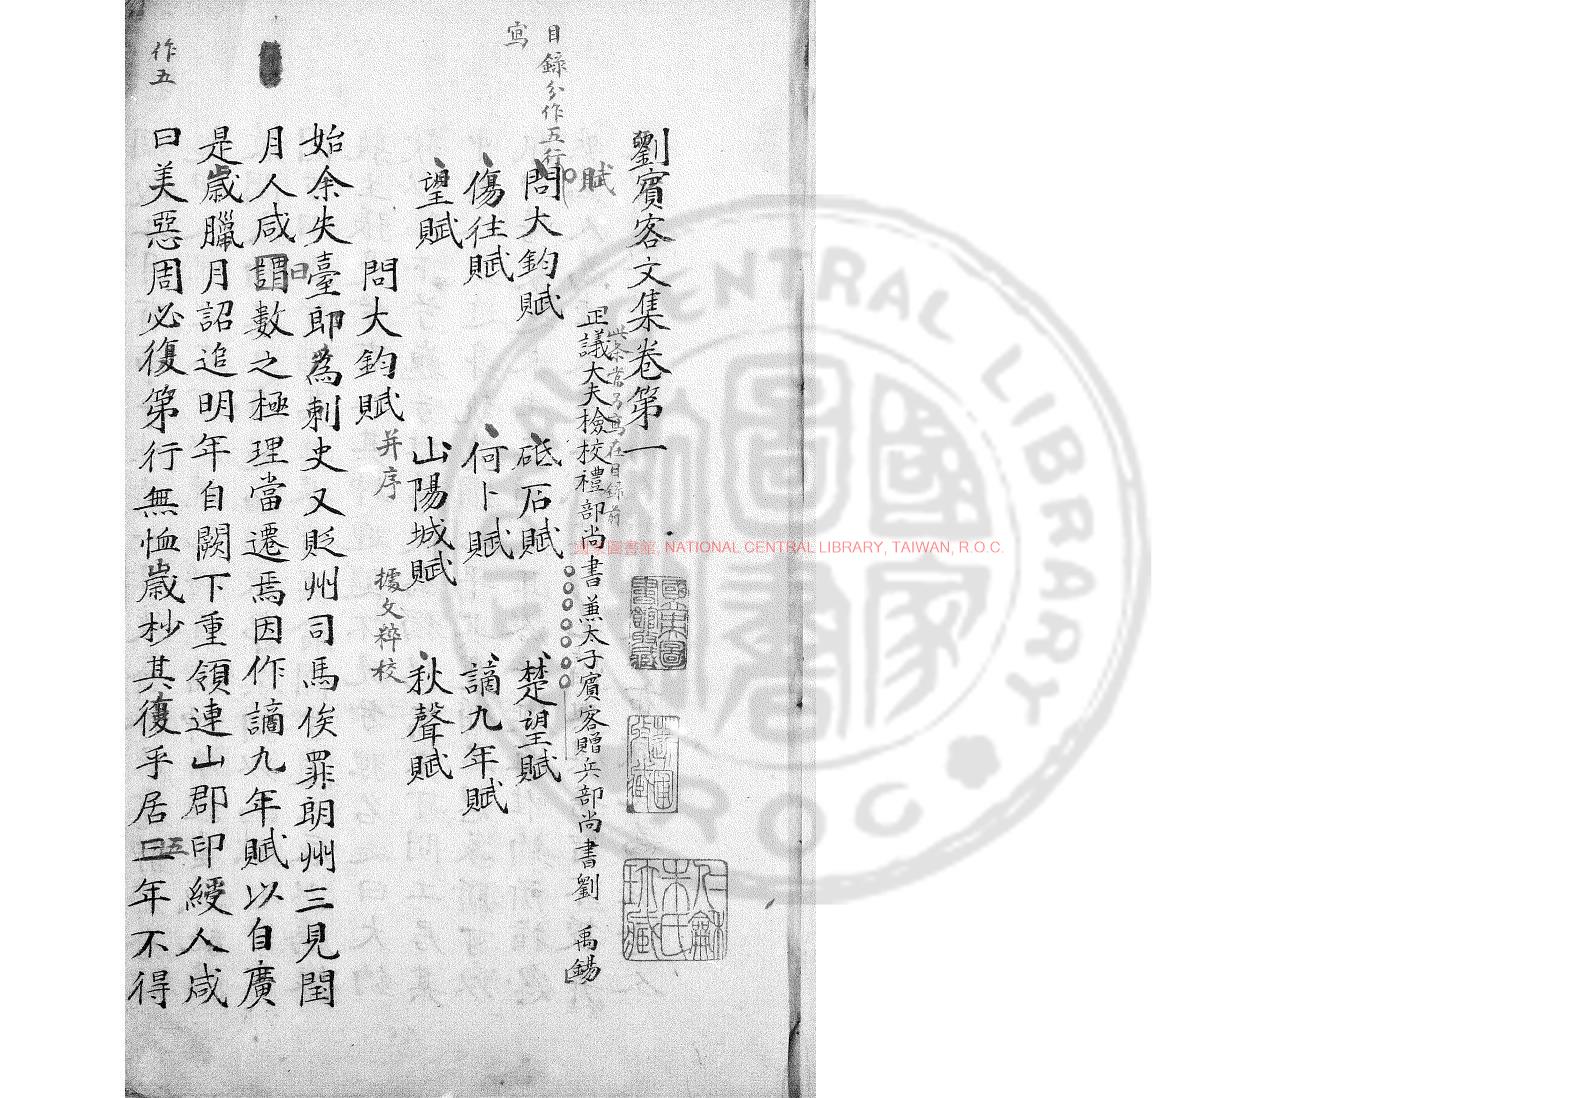 劉賓客文集卷第一
正議大夫檢校禮部尚書兼太子賓客贈兵部尚書劉 禹錫
此条當另寫在目錄前
賦
目錄分作五行
寫
問大鈞賦 砥石賦 楚望賦
傷往賦 何卜賦 謫九年賦
望賦 山陽城賦 秋聲賦
問大鈞賦 并序 據文粹校
始余失臺郎為刺史又貶州司馬俟罪朗州三見閏
月人咸謂數之極理當遷焉因作謫九年賦以自廣
曰
是歲臘月詔追明年自闕下重領連山郡印綬人咸
曰美惡周必復第行無恤歲杪其復乎居三年不得
五
作五
國家圖書館, NATIONAL CENTRAL LIBRARY, TAIWAN, R.O.C.
CENTRAL LIBRARY
ROC
國家圖書館藏